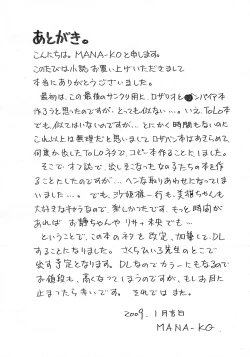 あとがき。
こんにちは。MANA-KOと申します。
このたびは小説お買い上げいただきまして
本当にありがとうございました。
最初は、この最後のサンクリ用に、ロザリオとバンパイア本
作ろうと思ったのですが、とっても似ない…。いえToLoるでも
でも似てはいないのですが…とにかく時間もないのに
これ以上は無理だと思いまして。ロザバン本はあきらめて、
何集か出したToLoネタで、コピー本作ることにしました。
そこで、オフ誌で、出しきこなったな子たちの本を作る
ことしたのですが…ヘンな取りあわせになってしま
いました…。でも、沙姫様一行も、美柑ちゃんも
大好きなキャラなので、楽しかったです。もっと時間が
あれば お静ちゃんや リサ、未央 でも…
ということで、この本のネタを 改定、加筆して、DL
することになりました。さくらぢいろ先生のとこで
出す予定となります。DLなのでカラーにもなるので
お値段も、高くなってしまうのですが、もしお目に
止まったら幸いです。それではまた。
2009. 1月吉日
MANA-KO